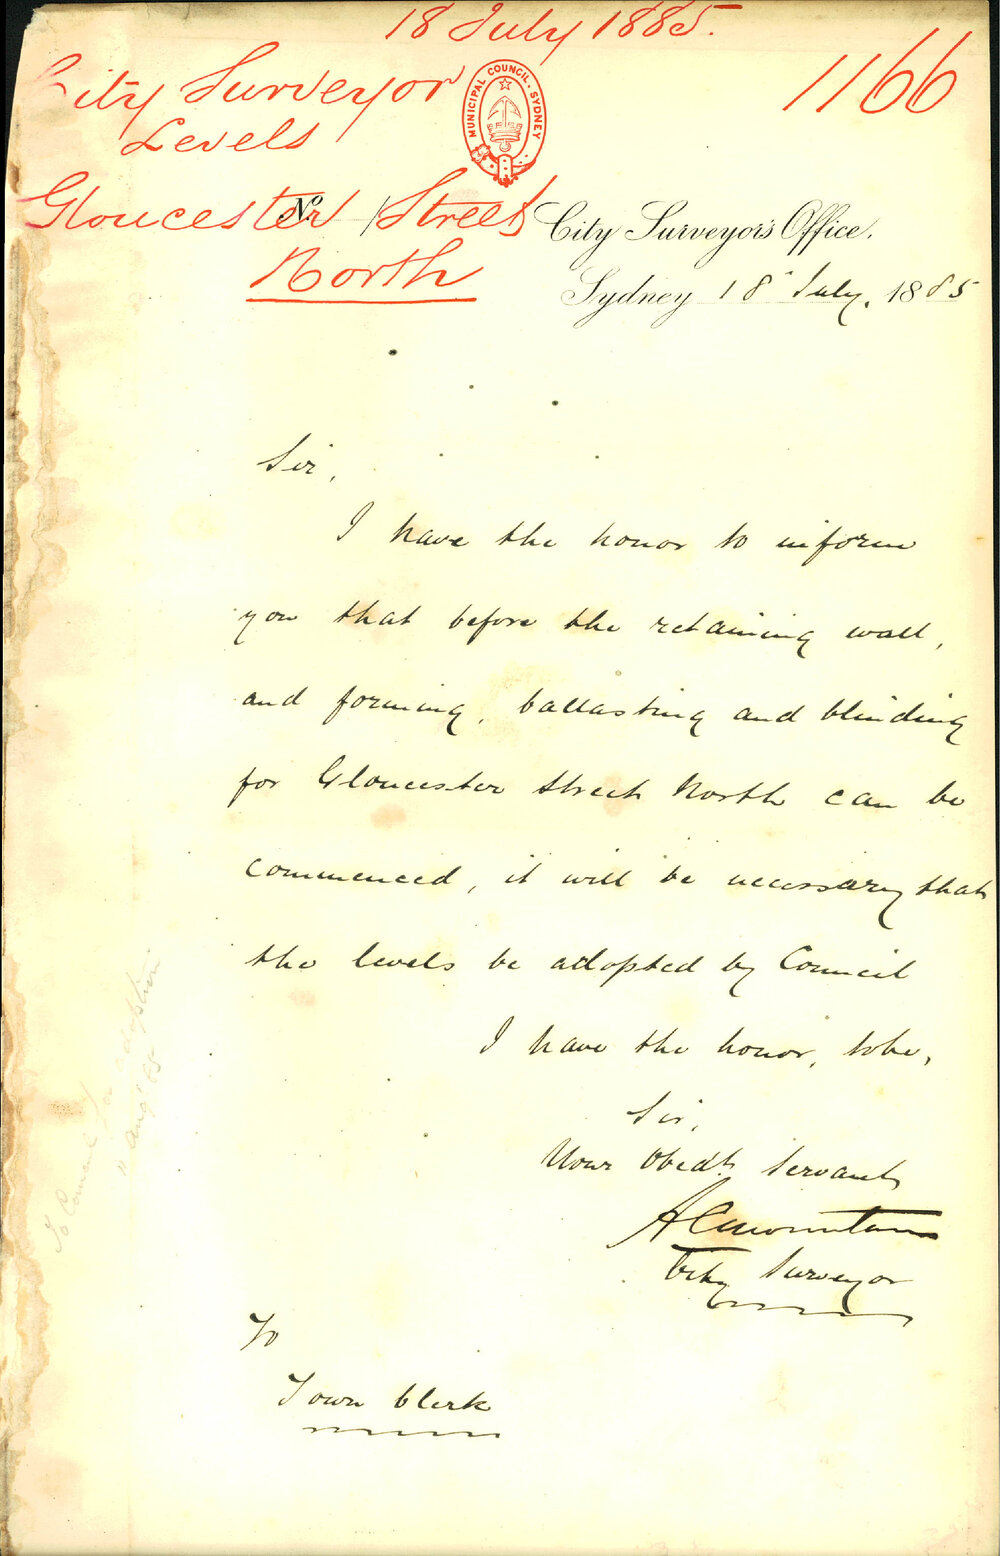 18 July 1885.
1166
City Surveyor
Levels
Gloucester Street
North
MUNICIPAL COUNCIL. SYDNEY
No. /
City Surveyor's Office.
Sydney 18 July. 1885
Sir,
I have the honor to inform
you that before the retaining wall,
and forming, ballasting and blinding
for Gloucester Street North can be
commenced, it will be necessary that
the levels be adopted by Council
I have the honor, to be,
Sir,
Your Obedt Servant
A C Mountain
City Surveyor
To
Town Clerk
To Council for adoption
11 Augt 85